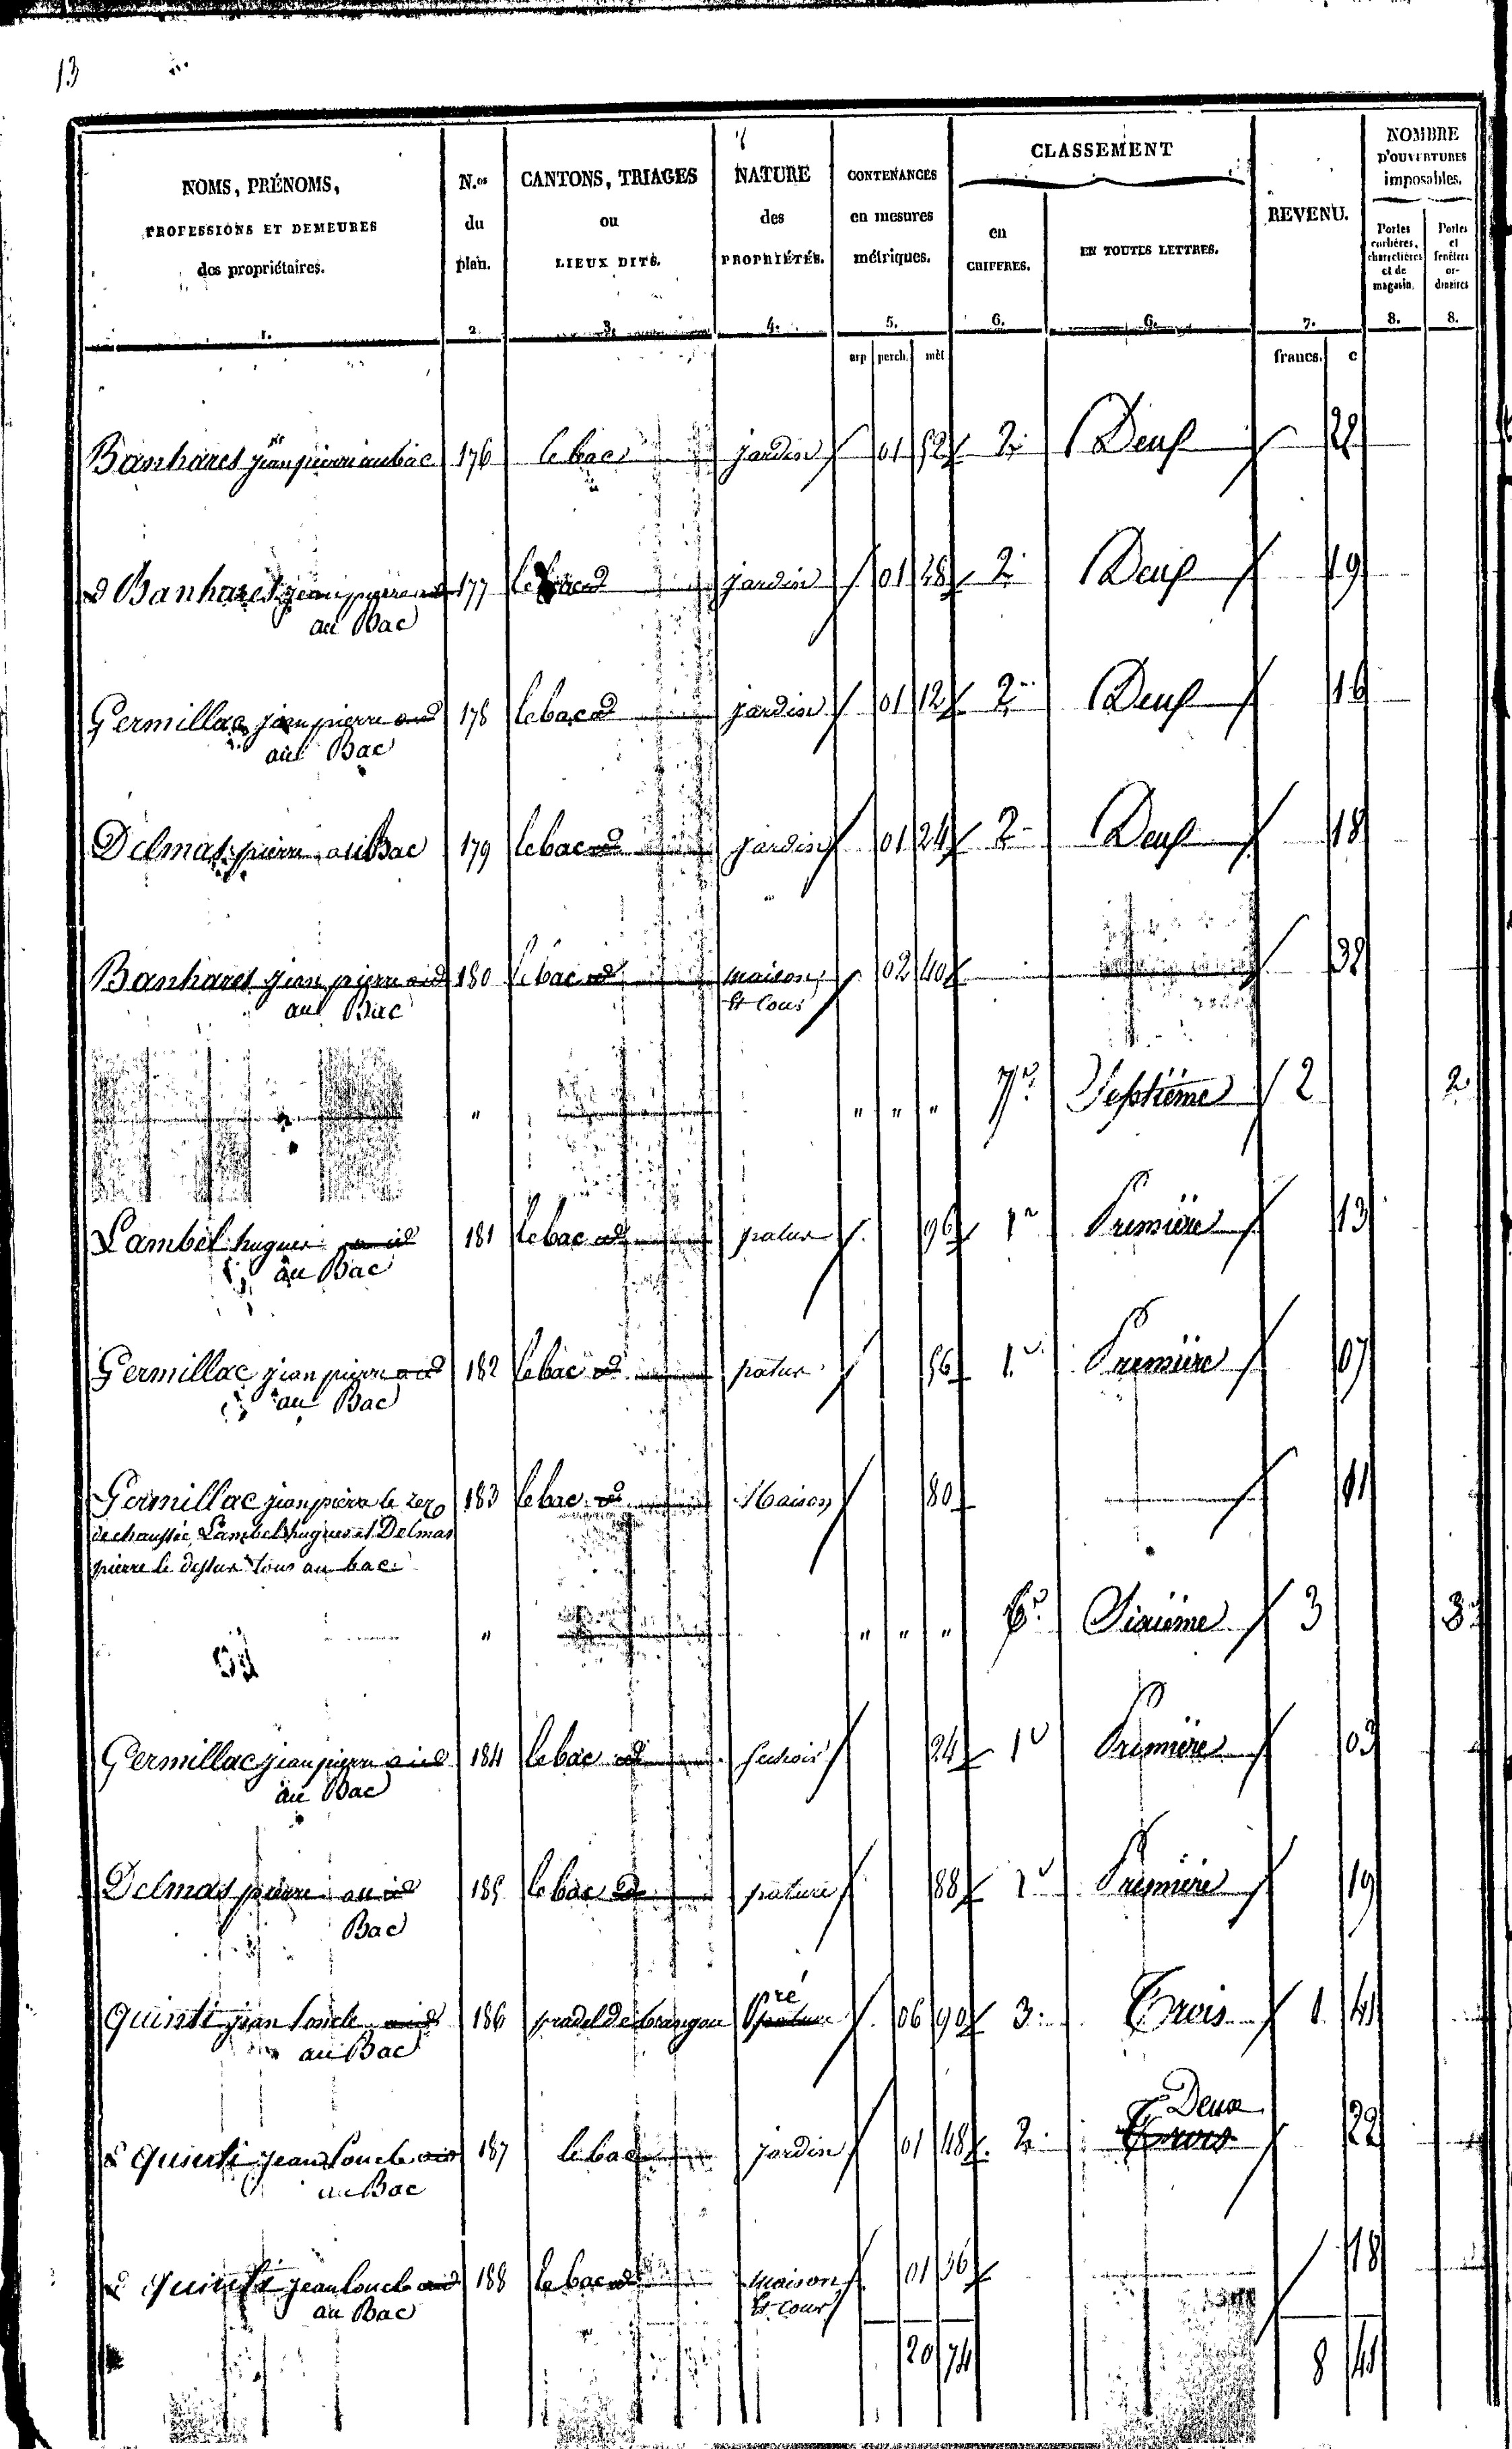 13
NOMS, PRÉNOMS,
PROFESSIONS ET DEMEURES
des propriétaires.
1.
N.os
du
plan.
2.
CANTONS, TRIAGES
ou
LIEUX DITS.
3.
NATURE
des
PROPRIÉTÉS.
4.
CONTENANCES
en mesures
métriques.
5.
CLASSEMENT
en
CHIFFRES.
6.
EN TOUTES LETTRES.
6.
REVENU.
7.
NOMBRE
D'OUVERTURES
imposables.
Portes
cochères,
charretières
et de
magasin.
8.
Portes
et
fenêtres
or-
dinaires
8.
arp perch. mèt francs. c
Banhares jean pierre au bac 176 le bac jardin 01 52 2 Deux 22
Banhares jean pierre 177 le bac jardin 01 28 2 Deux 19
au Bac
Germillac jean pierre 178 le bac jardin 01 12 2 Deux 16
au Bac
Delmas pierre au Bac 179 le bac jardin 01 24 2 Deux 18
Banhares jean pierre 180 le bac maison 02 40 32
au Bac et Cour
" " " " 7e Septième 2 2
Lambel hugues 181 le bac patur 96 1re Première 13
au Bac
Germillac jean pierre 182 le bac patur 56 1re Première 07
au Bac
Germillac jean pierre le rez 183 le bac Maison 80 11
de chaussée, Lambel hugues et Delmas
pierre le dessus tous au bac
" " " " 6e Sixième 3 3
Germillac jean pierre 184 le bac 24 1re Première 03
au Bac
Delmas pierre au 185 le bac pature 88 1re Première 19
Bac
quinti jean 186 pré 06 90 3 Trois 1 41
au Bac
quinti jean 187 le bac jardin 01 48 2 Trois Deux 22
au Bac
quinti jean 188 le bac maison 01 36 18
au Bac et cour
20 74 8 41